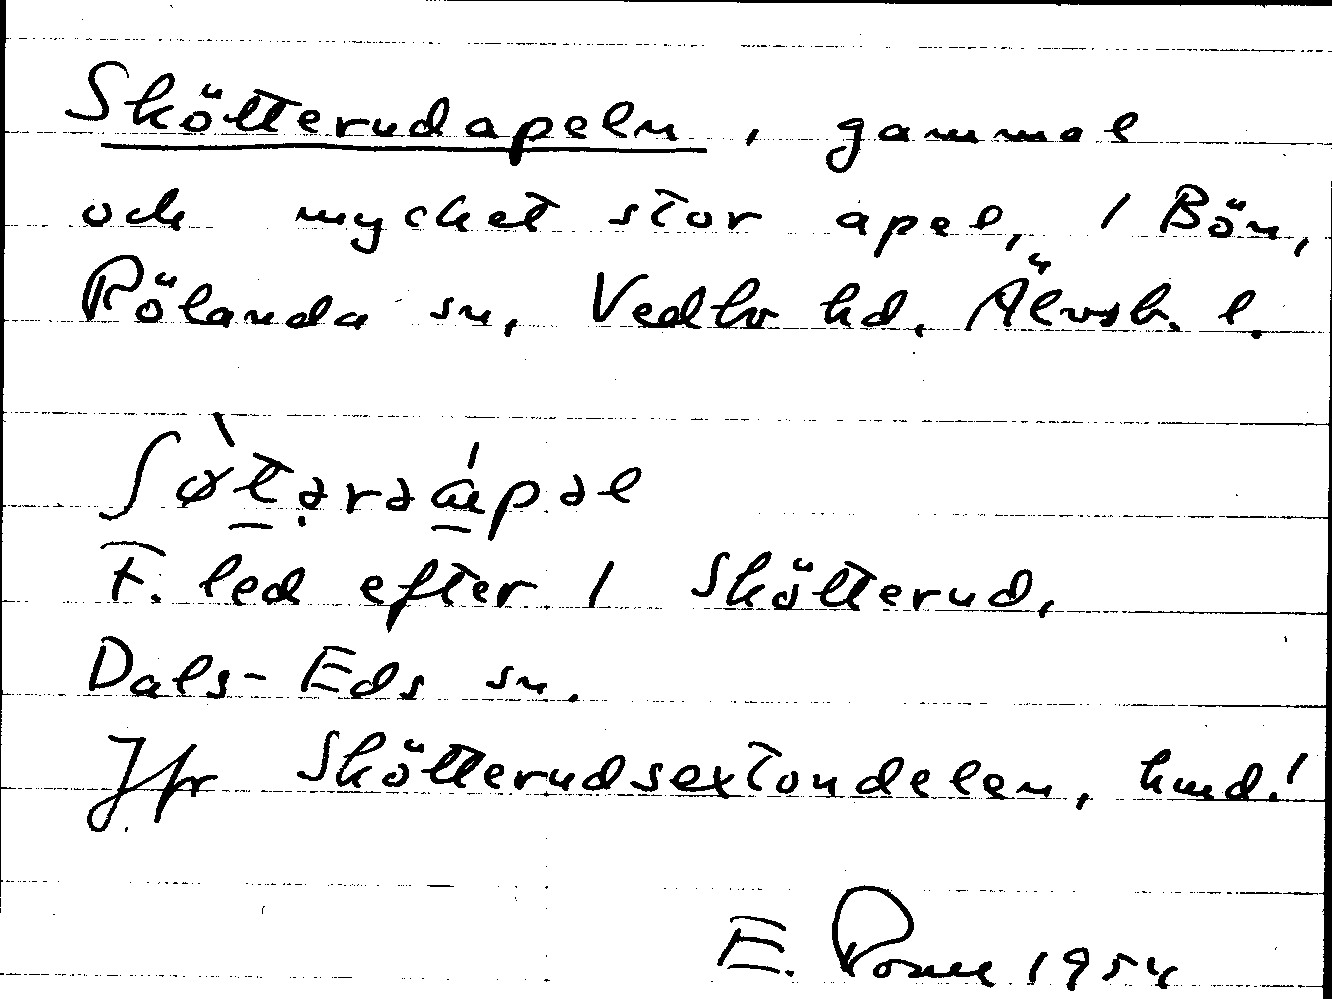 Skötterudapeln, gammal
och mycket stor apel, / Bön,
Rölanda sn, Vedbo hd, Älvsb. l.
ʃø̀tərəæ̍pəl
F. led efter / Skötterud,
Dals-Eds sn.
Jfr Skötterudsextondelen, hmd!
E. 1954